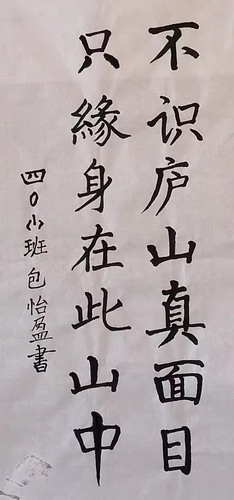 不识庐山真面目
只緣身在此山中
四〇小班包怡盈書